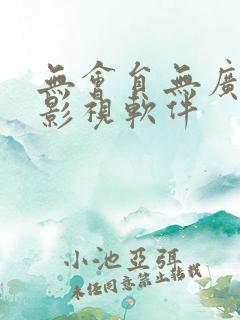 無會員無廣
影視軟件
小池亞弭
未經同意禁止轉載